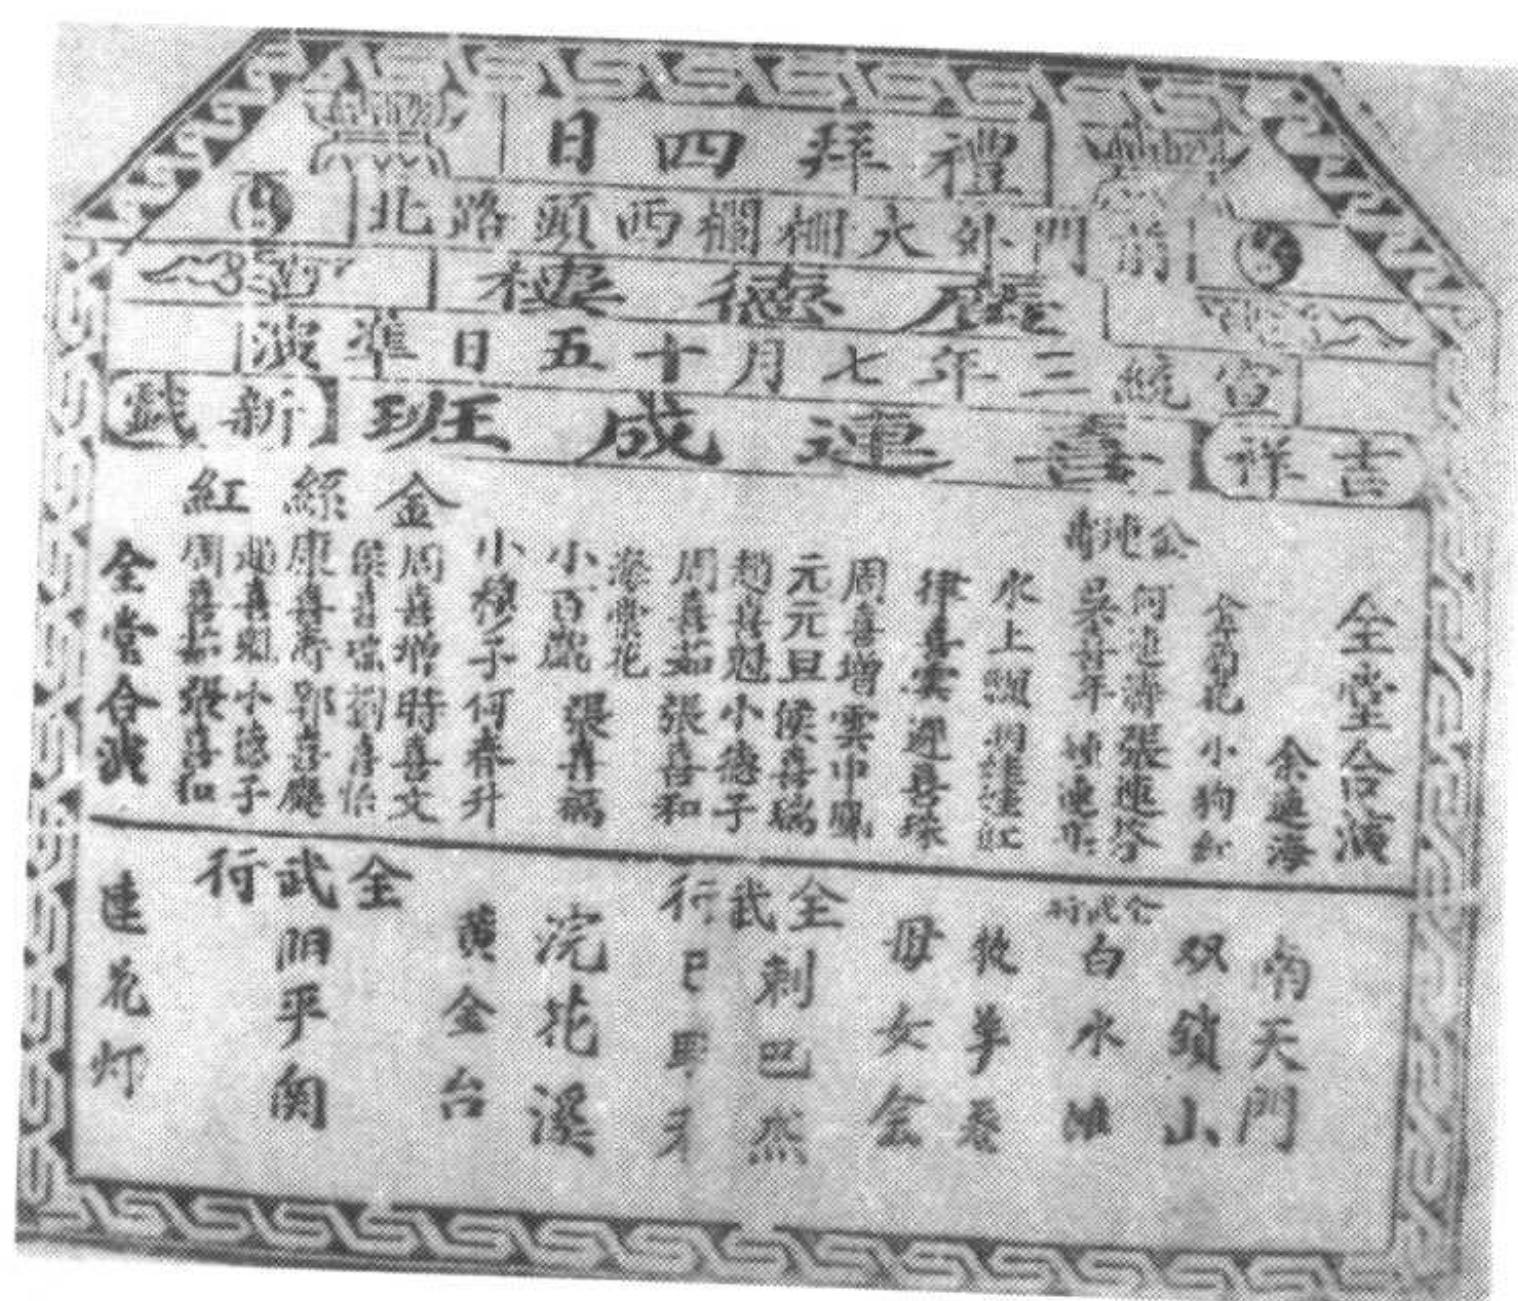 禮拜四日
前門外大柵欄西頭路北
廣德樓
宣統三年七月十五日準演
吉祥
喜連成班
新戲
全堂合演
余連海
金菊花
小狗紅
何連濤
張連
吳喜年
水上飄
律喜雲
迎喜珠
周喜增
雲中鳳
元元旦
侯喜瑞
趙喜魁
小德子
周喜茹
張喜和
海棠花
小百歲
張喜福
小穆子
何春升
金絲紅
周喜增
時喜文
侯喜瑞
劉喜怡
康喜壽
郭喜慶
趙喜魁
小德子
周喜茹
張喜和
全堂合演
南天門
双鎖山
全武行
白水灘
牧羊卷
母女会
全武行
刺巴杰
巴駱和
浣花溪
黄金台
全武行
陽平関
蓮花灯